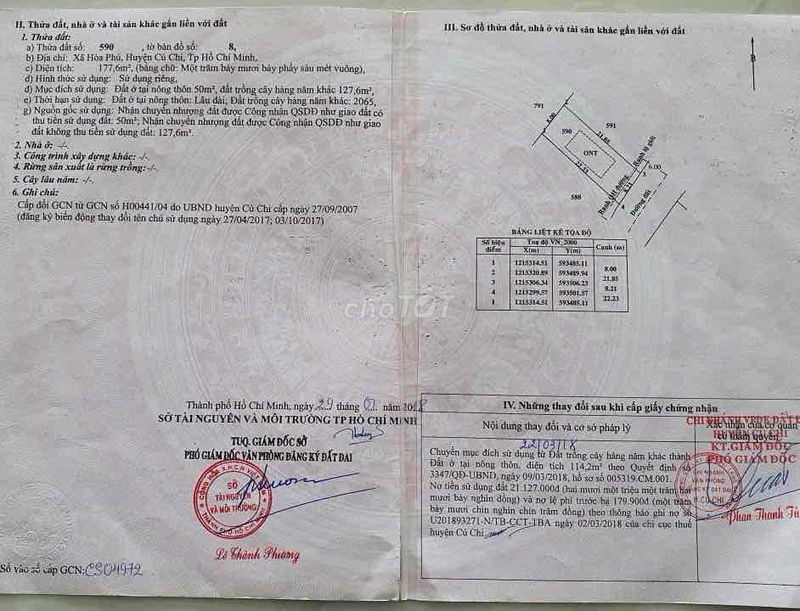 II. Thửa đất, nhà ở và tài sản khác gắn liền với đất
1. Thửa đất:
a) Thửa đất số: 590 , tờ bản đồ số: 8,
b) Địa chỉ: Xã Hòa Phú, Huyện Củ Chi, Tp Hồ Chí Minh,
c) Diện tích: 177,6m², (bằng chữ: Một trăm bảy mươi bảy phẩy sáu mét vuông),
d) Hình thức sử dụng: Sử dụng riêng,
đ) Mục đích sử dụng: Đất ở tại nông thôn 50m², đất trồng cây hàng năm khác 127,6m²,
e) Thời hạn sử dụng: Đất ở tại nông thôn: Lâu dài; Đất trồng cây hàng năm khác: 2065,
g) Nguồn gốc sử dụng: Nhận chuyển nhượng đất được Công nhận QSDĐ như giao đất có
thu tiền sử dụng đất: 50m²; Nhận chuyển nhượng đất được Công nhận QSDĐ như giao
đất không thu tiền sử dụng đất: 127,6m².
2. Nhà ở: -/-.
3. Công trình xây dựng khác: -/-.
4. Rừng sản xuất là rừng trồng:-/-.
5. Cây lâu năm: -/-.
6. Ghi chú:
Cấp đổi GCN từ GCN số H00441/04 do UBND huyện Củ Chi cấp ngày 27/09/2007
(đăng ký biến động thay đổi tên chủ sử dụng ngày 27/04/2017; 03/10/2017)
Thành phố Hồ Chí Minh, ngày 29 tháng 01 năm 2018
SỞ TÀI NGUYÊN VÀ MÔI TRƯỜNG TP HỒ CHÍ MINH
TUQ. GIÁM ĐỐC SỞ
PHÓ GIÁM ĐỐC VĂN PHÒNG ĐĂNG KÝ ĐẤT ĐAI
SỞ
TÀI NGUYÊN
VÀ MÔI TRƯỜNG
THÀNH PHỐ HỒ CHÍ MINH
Lê Thành Phương
Số vào sổ cấp GCN: CS04972
III. Sơ đồ thửa đất, nhà ở và tài sản khác gắn liền với đất
B
791
591
8.00
590
21.85
ONT
22.23
8.21
Ranh lộ giới
6.00
588
Ranh cắt đường
Đường đá
3
4
BẢNG LIỆT KÊ TỌA ĐỘ
Số hiệu điểm Tọa độ VN_2000 Cạnh (m)
X(m) Y(m)
1 1215314.51 593485.11
8.00
2 1215320.89 593489.94
21.85
3 1215306.34 593506.23
8.21
4 1215299.57 593501.57
22.23
1 1215314.51 593485.11
choTỐT
IV. Những thay đổi sau khi cấp giấy chứng nhận
Nội dung thay đổi và cơ sở pháp lý
Xác nhận của cơ quan
có thẩm quyền
CHI NHÁNH VPĐK ĐẤT Đ
HUYỆN CỦ CHI
KT.GIÁM ĐỐC
PHÓ GIÁM ĐỐC
22/03/18
Chuyển mục đích sử dụng từ Đất trồng cây hàng năm khác thành
Đất ở tại nông thôn, diện tích 114,2m² theo Quyết định số
3347/QĐ-UBND, ngày 09/03/2018, hồ sơ số 005319.CM.001.
Nợ tiền sử dụng đất 21.127.000đ (hai mươi một triệu một trăm hai
mươi bảy nghìn đồng) và nợ lệ phí trước bạ 179.900đ (một trăm
bảy mươi chín nghìn chín trăm đồng) theo thông báo ghi nợ số
U201893271-N/TB-CCT-TBA ngày 02/03/2018 của chi cục thuế
huyện Củ Chi,
Phan Thanh Tú